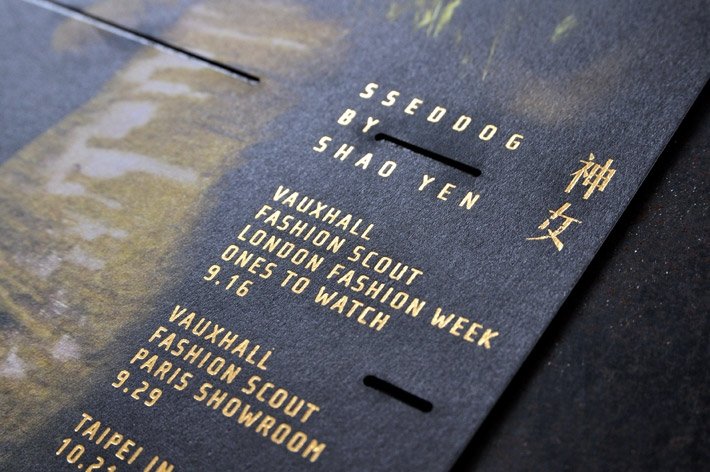 SSEDDOG
BY
SHAO YEN
神女
VAUXHALL
FASHION SCOUT
LONDON FASHION WEEK
ONES TO WATCH
9.16
VAUXHALL
FASHION SCOUT
PARIS SHOWROOM
9.29
TAIPEI IN